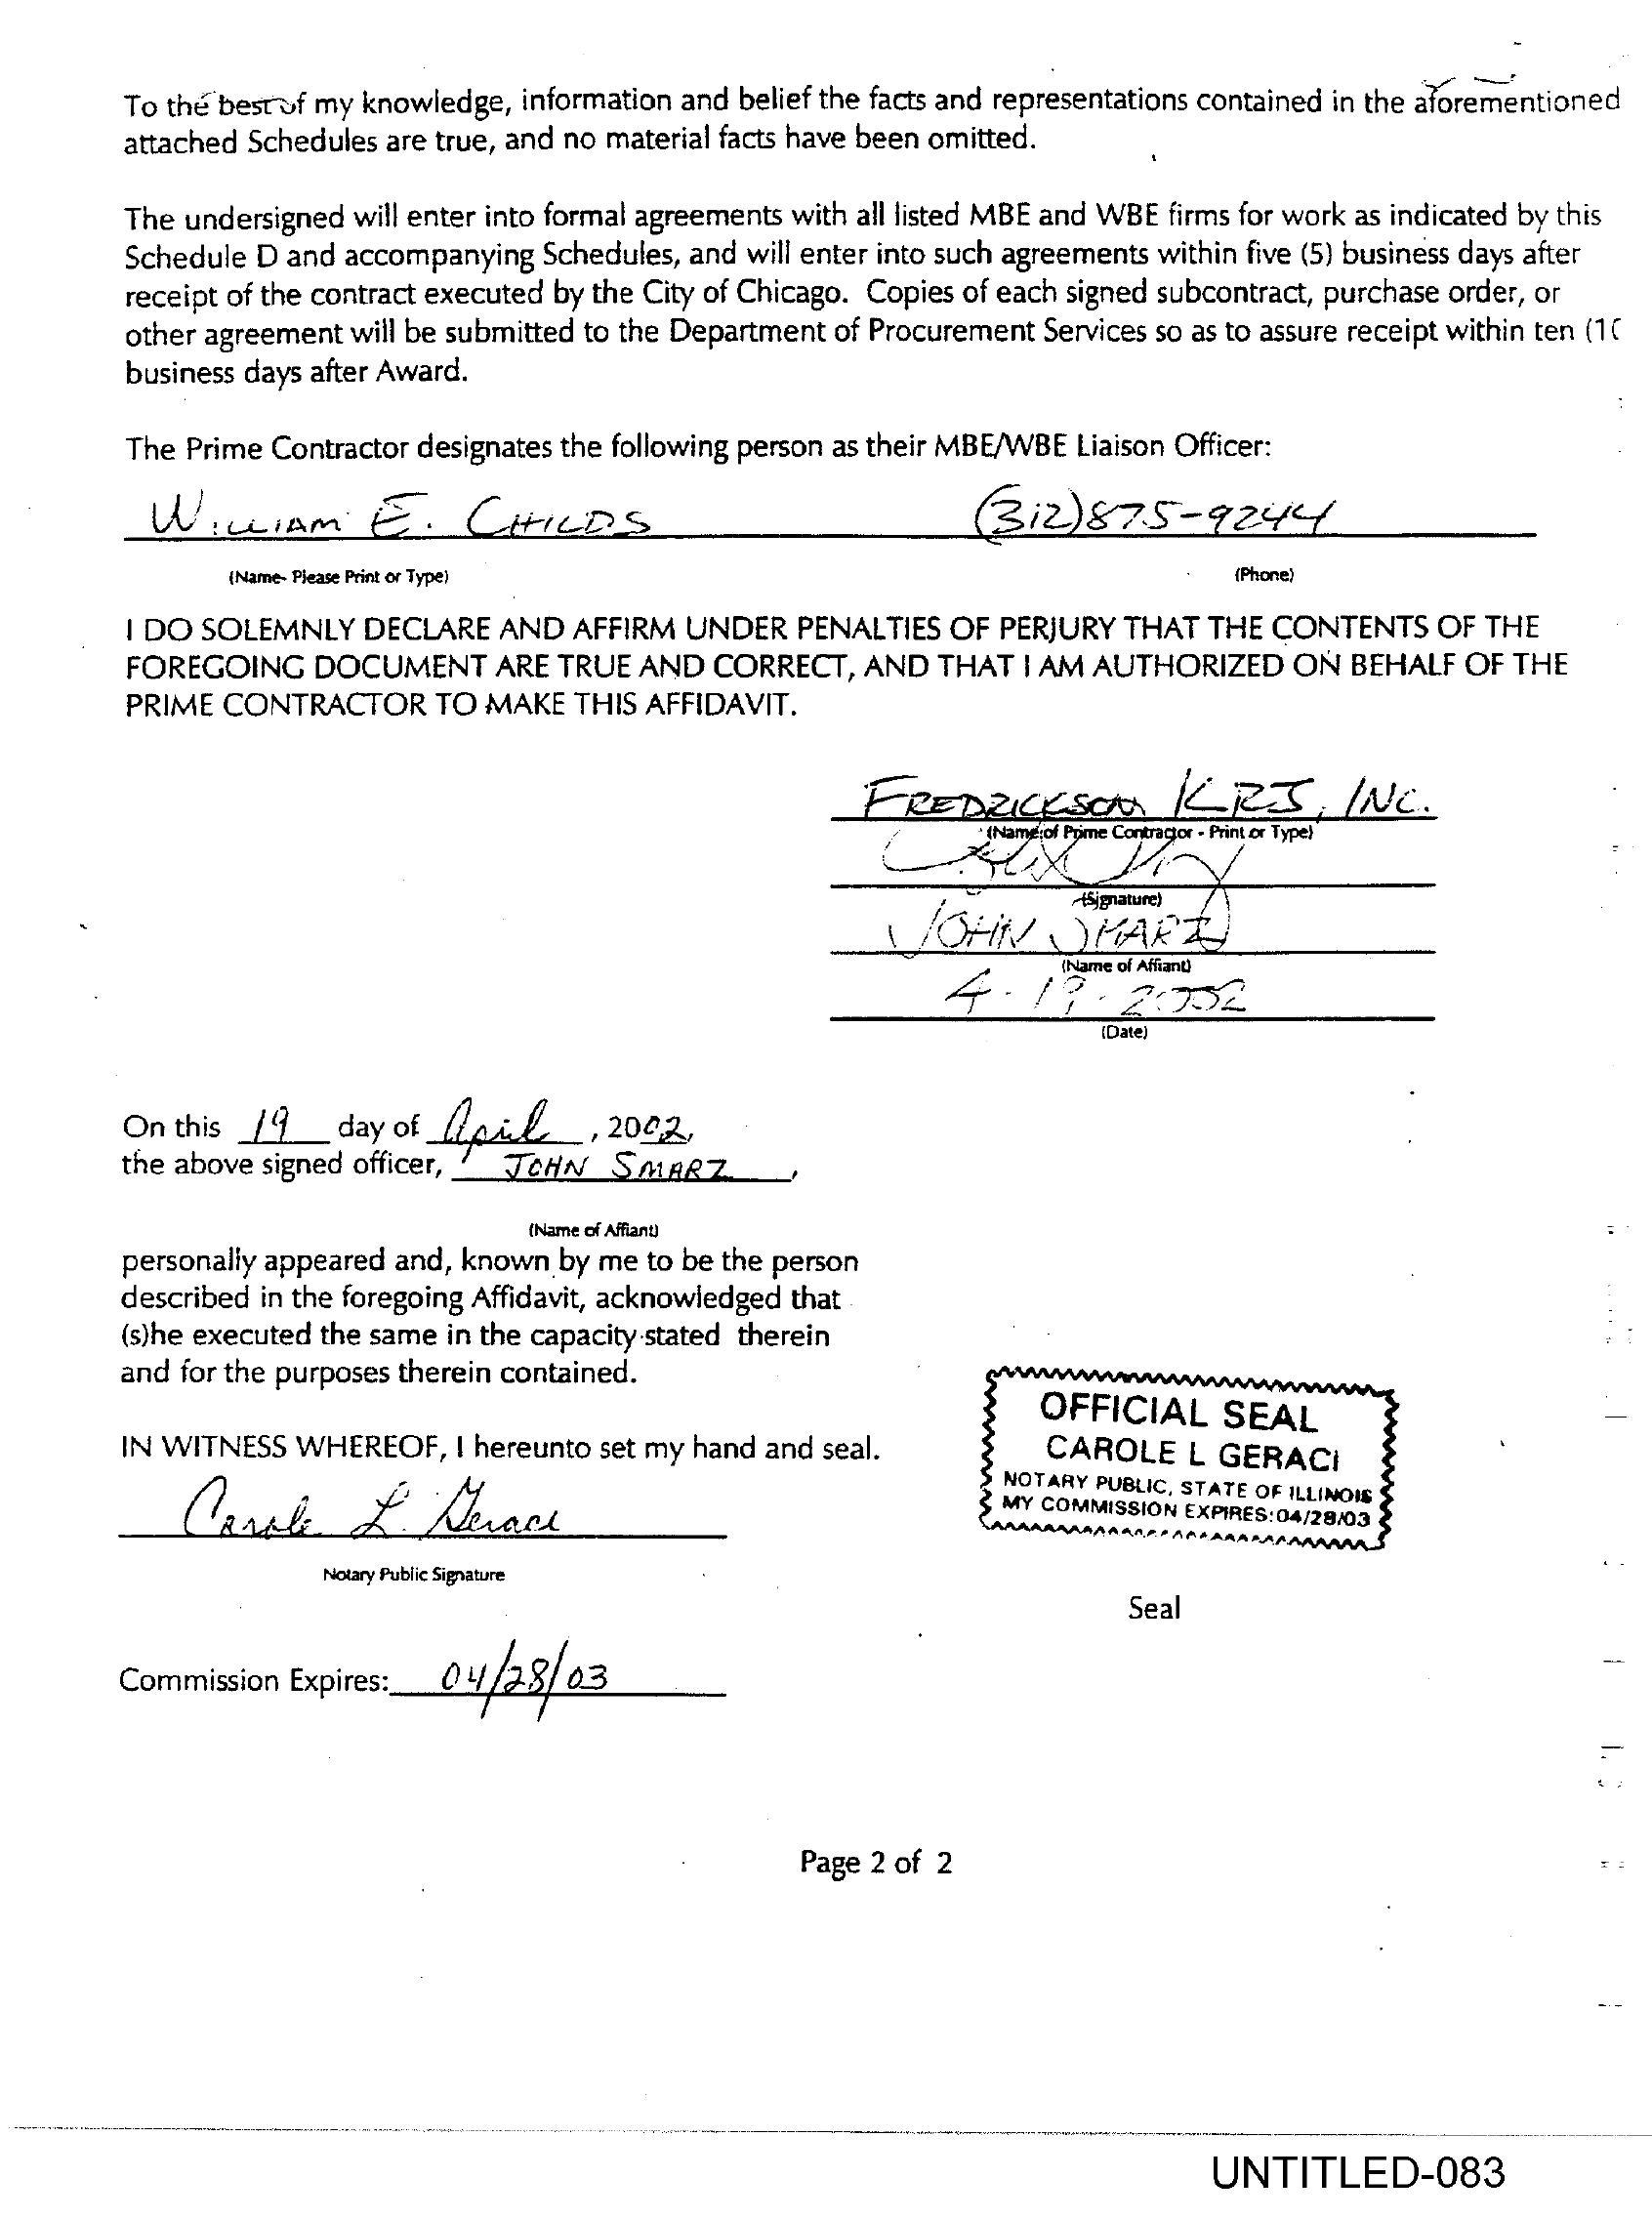 To the best of my knowledge, information and belief the facts and representations contained in the aforementioned
attached Schedules are true, and no material facts have been omitted.
The undersigned will enter into formal agreements with all listed MBE and WBE firms for work as indicated by this
Schedule D and accompanying Schedules, and will enter into such agreements within five (5) business days after
receipt of the contract executed by the City of Chicago. Copies of each signed subcontract, purchase order, or
other agreement will be submitted to the Department of Procurement Services so as to assure receipt within ten (10
business days after Award.
The Prime Contractor designates the following person as their MBE/WBE Liaison Officer:
WILLIAM E. CHILDS (312)875-9244
(Name- Please Print or Type) (Phone)
I DO SOLEMNLY DECLARE AND AFFIRM UNDER PENALTIES OF PERJURY THAT THE CONTENTS OF THE
FOREGOING DOCUMENT ARE TRUE AND CORRECT, AND THAT I AM AUTHORIZED ON BEHALF OF THE
PRIME CONTRACTOR TO MAKE THIS AFFIDAVIT.
FREDRICKSON KRJ, INC.
(Name of Prime Contractor - Print or Type)
(Signature)
JOHN SMARZ
(Name of Affiant)
4-19-2002
(Date)
On this 19 day of April, 2002,
the above signed officer, JOHN SMARZ,
(Name of Affiant)
personally appeared and, known by me to be the person
described in the foregoing Affidavit, acknowledged that
(s)he executed the same in the capacity stated therein
and for the purposes therein contained.
IN WITNESS WHEREOF, I hereunto set my hand and seal.
Carole L. Geraci
Notary Public Signature
OFFICIAL SEAL
CAROLE L GERACI
NOTARY PUBLIC, STATE OF ILLINOIS
MY COMMISSION EXPIRES:04/28/03
Seal
Commission Expires: 04/28/03
Page 2 of 2
UNTITLED-083